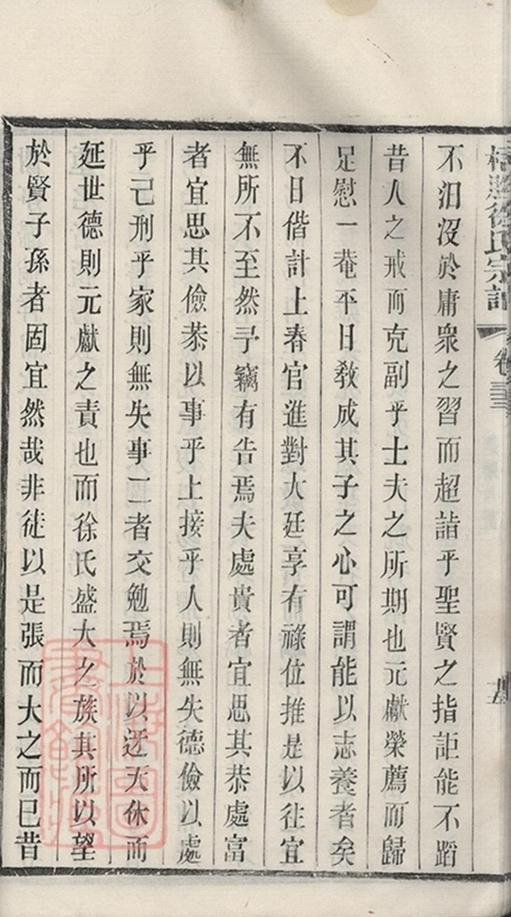 徐氏宗譜
卷三
五
不汨沒於庸衆之習而超詣乎聖賢之指詎能不蹈
昔人之戒而克副乎士夫之所期也元獻榮薦而歸
足慰一菴平日敎成其子之心可謂能以志養者矣
不日偕計上春官進對大廷享有祿位推是以往宜
無所不至然予竊有告焉夫處貴者宜思其恭處富
者宜思其儉恭以事乎上接乎人則無失德儉以處
乎己刑乎家則無失事二者交勉焉於以迓天休而
延世德則元獻之責也而徐氏盛大之族其所以望
於賢子孫者固宜然哉非徒以是張而大之而已昔